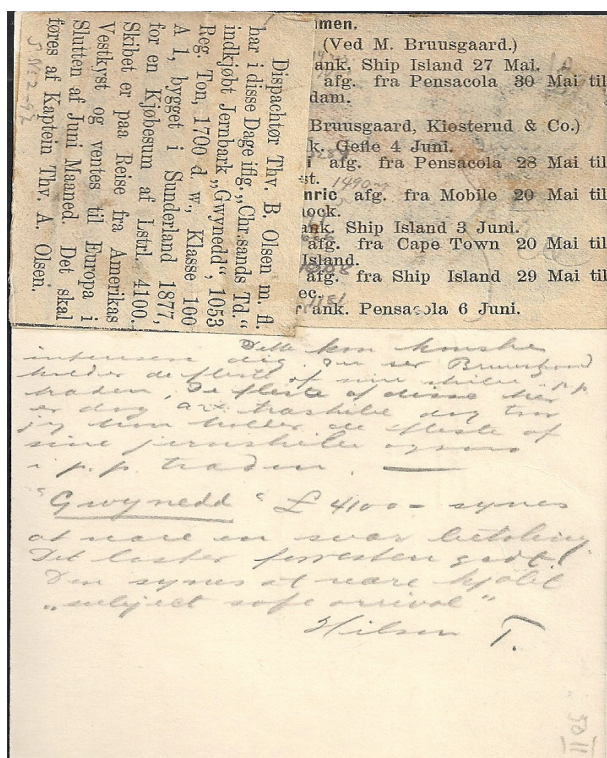 Dispachtør Thv. B. Olsen m. fl.
har i disse Dage iflg. „Chr.sands Td.“
indkjøbt Jernbark „Gwynedd“, 1053
Reg. Ton, 1700 d. w., Klasse 100
A 1, bygget i Sunderland 1877,
for en Kjøbesum af Lstrl. 4100.
Skibet er paa Reise fra Amerikas
Vestkyst og ventes til Europa i
Slutten af Juni Maaned. Det skal
føres af Kaptein Thv. A. Olsen.
mmen.
(Ved M. Bruusgaard.)
ank. Ship Island 27 Mai.
afg. fra Pensacola 30 Mai til
dam.
Bruusgaard, Kiøsterud & Co.)
k. Gefle 4 Juni.
afg. fra Pensacola 28 Mai til
st.
1490
nric afg. fra Mobile 20 Mai til
nock.
ank. Ship Island 3 Juni.
afg. fra Cape Town 20 Mai til
Island.
afg. fra Ship Island 29 Mai til
ec.
ank. Pensacola 6 Juni.
Dette kan kanske
interesere dig. Du ser Bruusgaard
holder de fleste af sine skibe i p.p.
traden. De fleste af disse her
er dog træskibe dog tror
jeg han holder de fleste af
sine jernskibe ogsaa
i p.p. traden.
"Gwynedd" £ 4100 - synes
at være en svær betaling.
Det laster forresten godt!
Den synes at være kjøbt
„subject safe arrival“
Hilsen T.